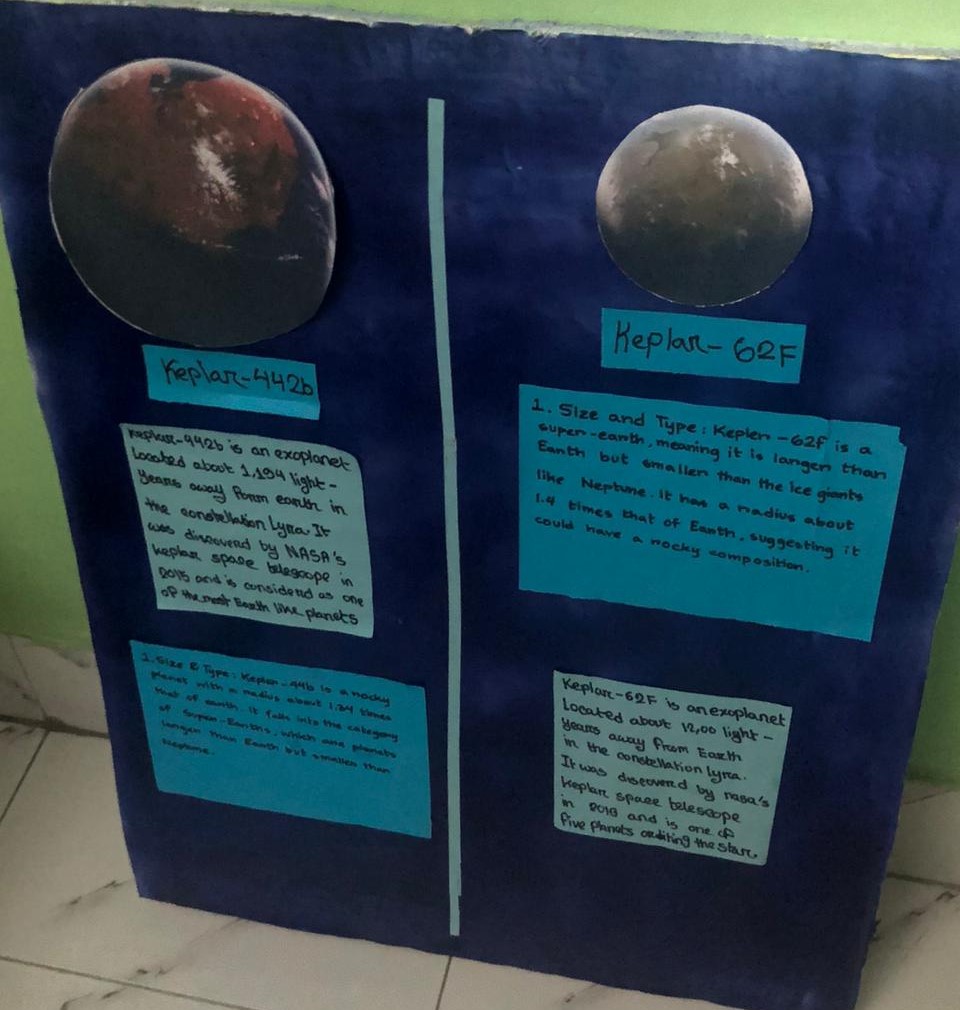 Keplar-442b
Keplar-442b is an exoplanet
Located about 1,194 light-
years away form earth in
the constellation Lyra. It
was discovered by NASA's
keplar space telescope in
2015 and is considerd as one
of the most Earth like planets
1. Size & Type: Kepler-44b is a rocky
planet with a radius about 1.34 times
that of earth. it falls into the category
of super-Earths, which are planets
larger than Earth but smaller than
Neptune.
Keplar-62F
1. Size and Type: Kepler-62f is a
super-earth, meaning it is larger than
Earth but smaller than the ice giants
like Neptune. it has a radius about
1.4 times that of Earth, suggesting it
could have a rocky composition.
Keplar-62F is an exoplanet
Located about 12,00 light-
years away from Earth
in the constellation lyra.
It was discovered by nasa's
keplar space telescope
in 2013 and is one of
five planets orbiting the star